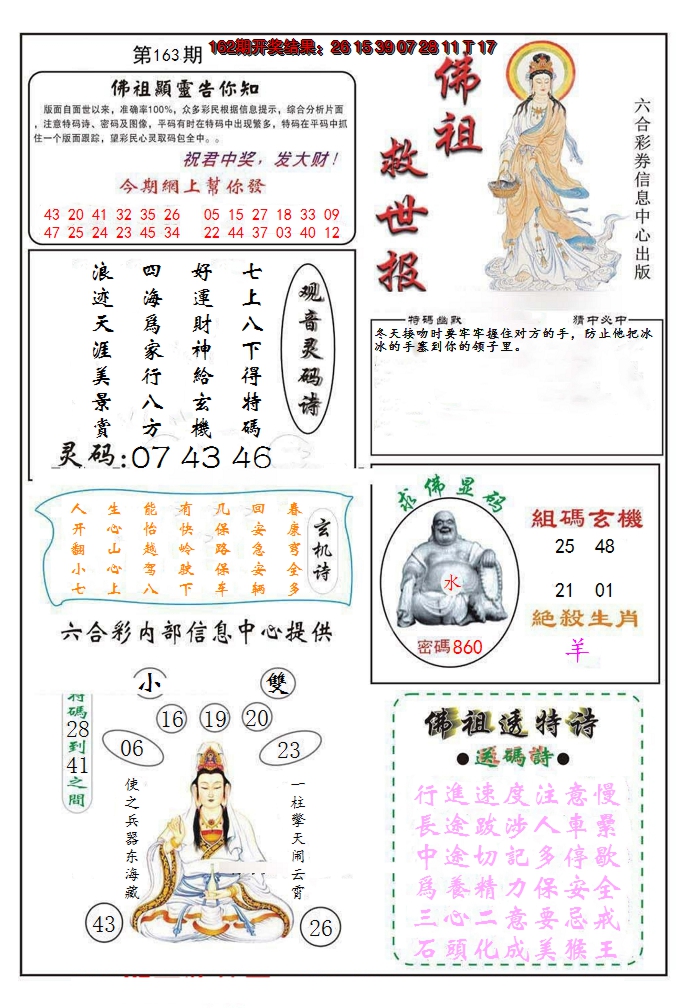 第163期
162期开奖结果：26 15 39 07 28 11 T 17
佛祖顯靈告你知
版面自面世以来，准确率100%，众多彩民根据信息提示，综合分析片面
，注意特码诗、密码及图像，平码有时在特码中出现繁多，特码在平码中抓
住一个版面跟踪，望彩民心灵取码包全中。。
祝君中奖，发大财！
今期網上幫你發
43 20 41 32 35 26 05 15 27 18 33 09
47 25 24 23 45 34 22 44 37 03 40 12
佛祖
救世报
六合彩券信息中心出版
观音灵码诗
七上八下得特碼
好運財神給玄機
四海爲家行八方
浪迹天涯美景賞
灵码:07 43 46
特碼幽默
猜中必中
冬天接吻时要牢牢握住对方的手，防止他把冰
冰的手塞到你的领子里。
玄机诗
春康穹全多
回安急安辆
几保路保车
有快岭驶下
能怡越驾八
生心山心上
人开翻小七
六合彩内部信息中心提供
求佛显码
水
密碼860
組碼玄機
25 48
21 01
絶殺生肖
羊
小
雙
特碼28到41之間
16 19 20
06
23
使之兵器东海藏
一柱擎天闹云霄
43
26
佛祖透特诗
●送碼詩●
行進速度注意慢
長途跋涉人車纍
中途切記多停歇
爲養精力保安全
三心二意要忌戒
石頭化成美猴王